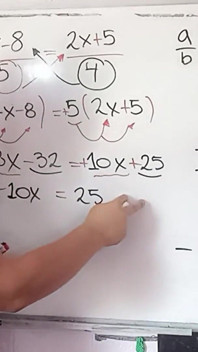 -8 = 2x+5
5 4
x-8) = +5(2x+5)
x-32 = +10x+25
-10x = 25
a
b